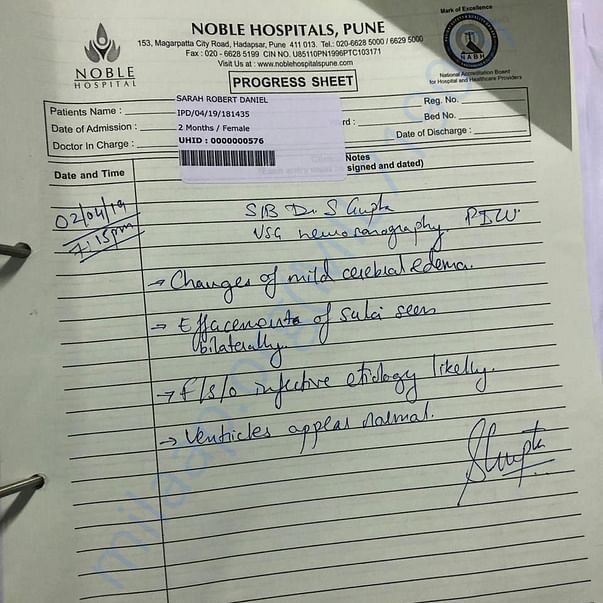 Mark of Excellence
NOBLE HOSPITALS, PUNE
153, Magarpatta City Road, Hadapsar, Pune 411 013. Tel.: 020-6628 5000 / 6629 5000
Fax : 020 - 6628 5199 CIN NO. U85110PN1996PTC103171
Visit Us at : www.noblehospitalspune.com
NOBLE
HOSPITAL
NABH
National Accreditation Board
for Hospital and Healthcare Providers
PROGRESS SHEET
Patients Name :
SARAH ROBERT DANIEL
Reg. No.
IPD/04/19/181435
Date of Admission :
2 Months / Female
rd :
Bed No.
Doctor In Charge :
UHID : 0000000576
Date of Discharge :
Date and Time
Notes
signed and dated)
02/04/19
7:15pm
S/B Dr. S Gupta
USG neurosonography.
→ Changes of mild cerebral edema.
→ Effacements of sulci seen
bilaterally.
→ f/s/o infective etiology likely.
→ Ventricles appear normal.
SGupta